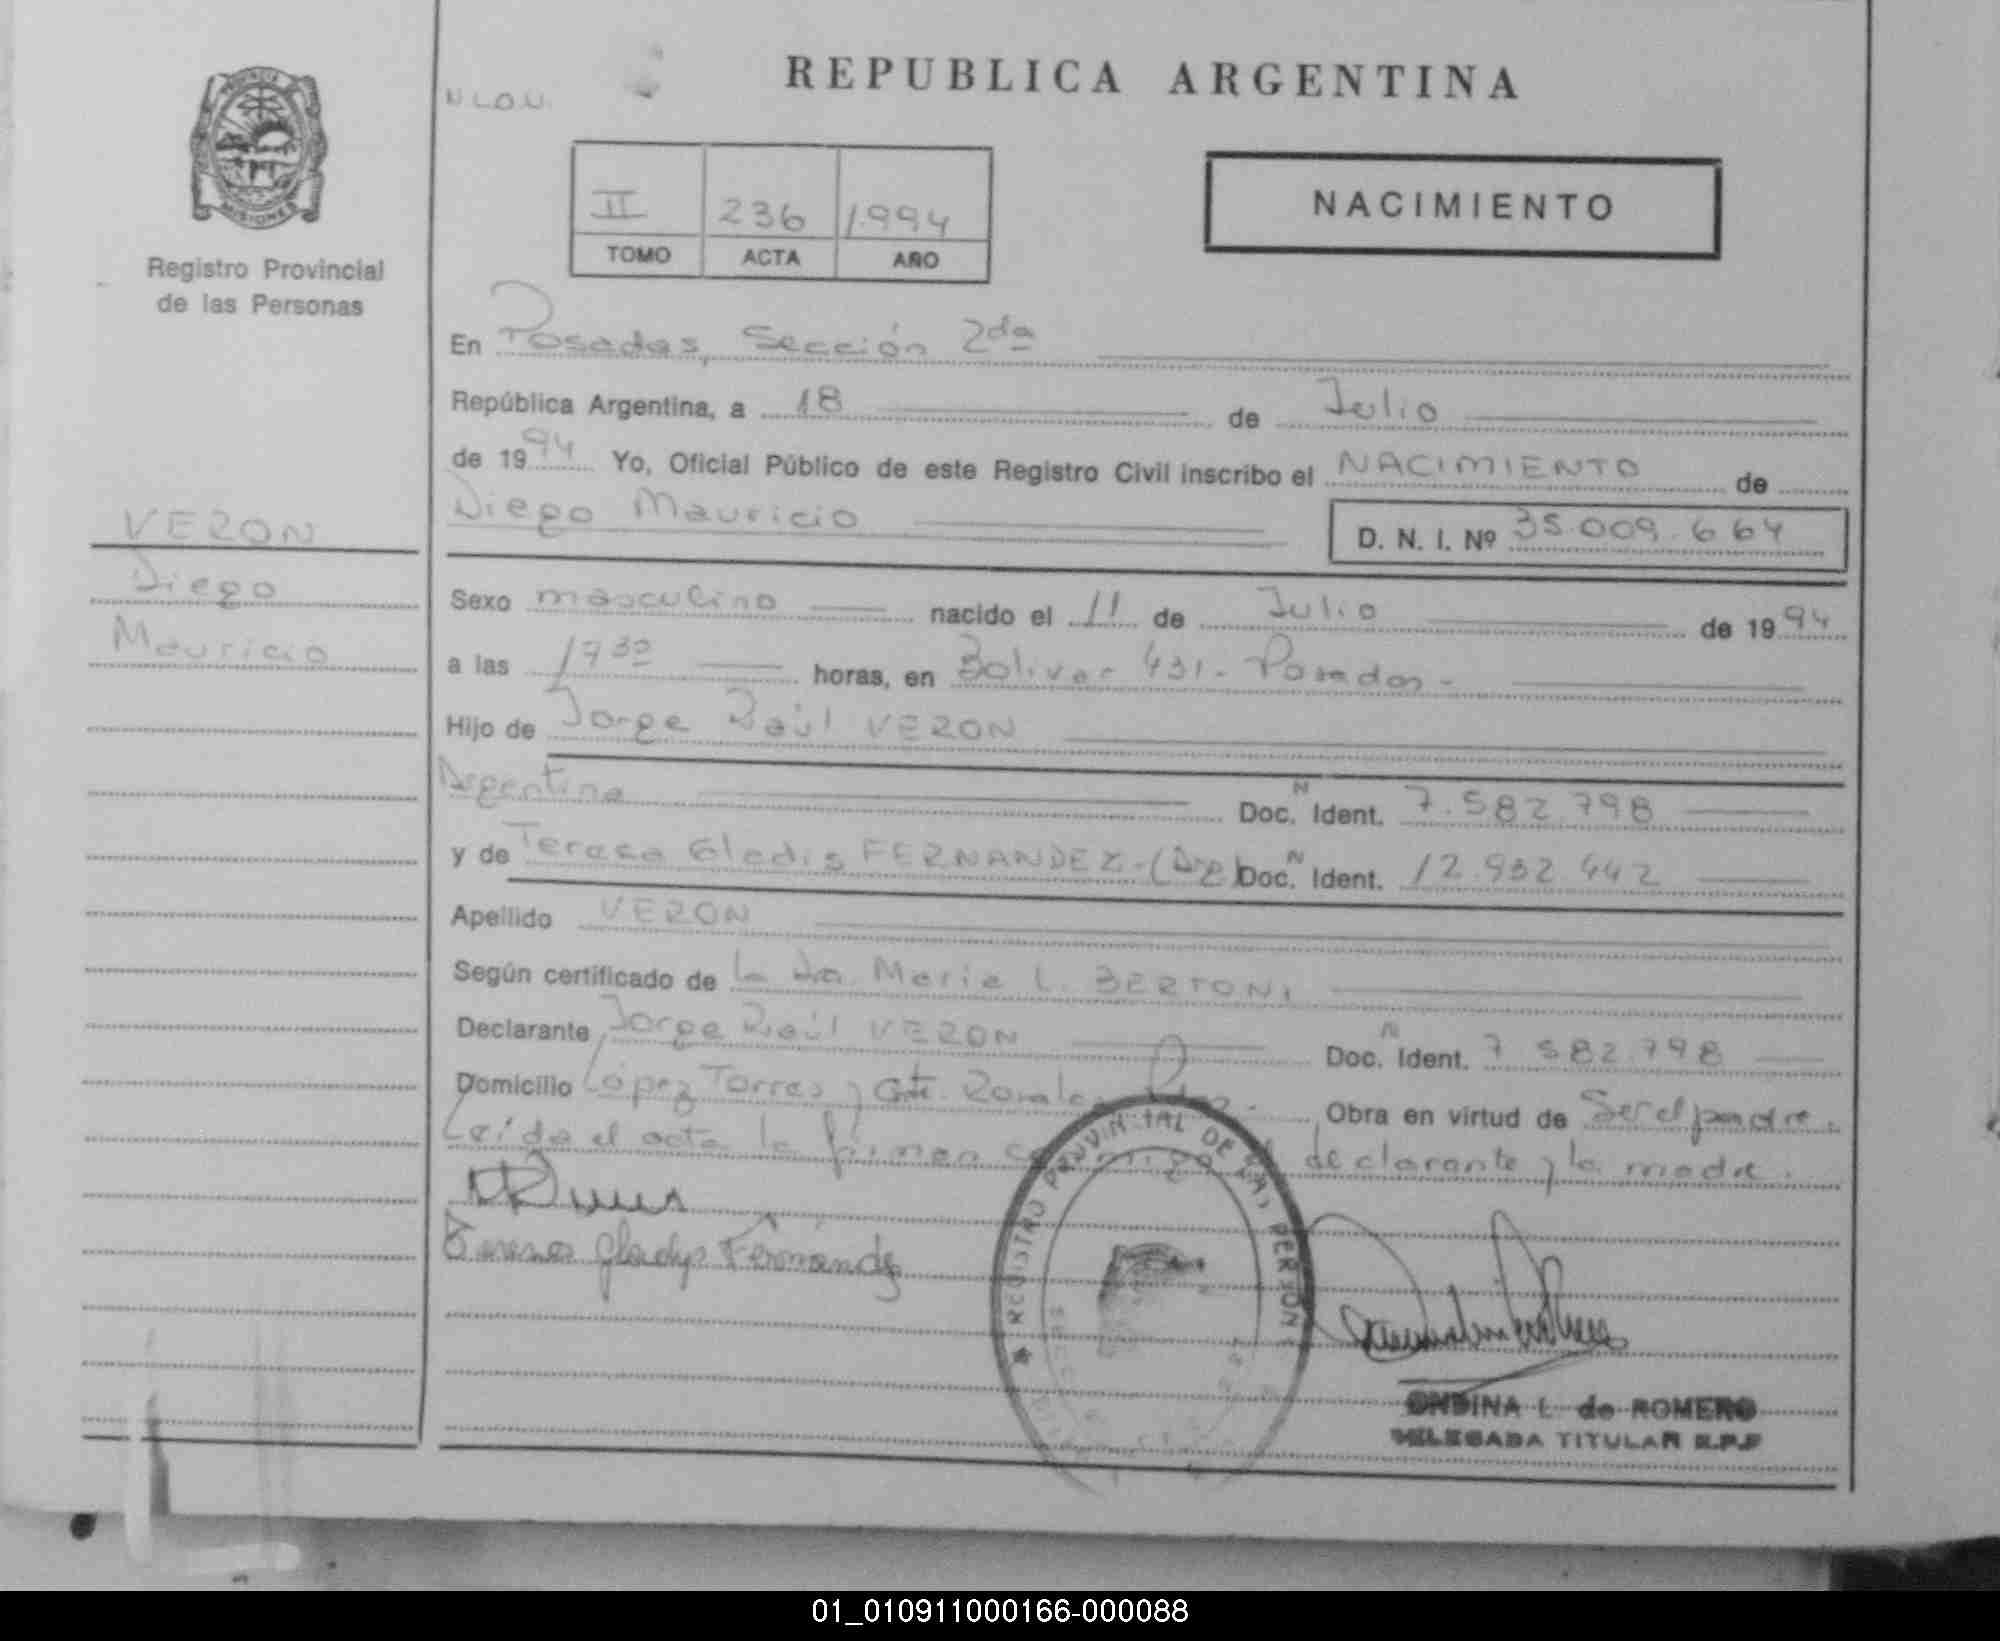 REPUBLICA ARGENTINA
N L.O.U.
PROVINCIA
MISIONES
Registro Provincial
de las Personas
II 236 1.994
TOMO ACTA AÑO
NACIMIENTO
En Posadas, Sección 2da
República Argentina, a 18 de Julio
de 1994 Yo, Oficial Público de este Registro Civil inscribo el NACIMIENTO de
Diego Mauricio D. N. I. Nº 35.009.664
VERON
Diego
Mauricio
Sexo masculino nacido el 11 de Julio de 1994
a las 17 30 horas, en Bolivar 431 - Posadas -
Hijo de Jorge Raúl VERON
Argentina Doc. N Ident. 7.582.798
y de Teresa Gladis FERNANDEZ - (Arg) Doc. N Ident. 12.932.442
Apellido VERON
Según certificado de la Dra. Maria L. BERTONI
Declarante Jorge Raúl VERON Doc. N Ident. 7.582.798
Domicilio López Torres y Obra en virtud de Ser el padre.
Leída el acta la firman conmigo declarante y la madre.
Teresa Gladys Fernández
REGISTRO PROVINCIAL DE LAS PERSONAS
ONDINA L. de ROMERO
DELEGADA TITULAR R.P.P
01_010911000166-000088